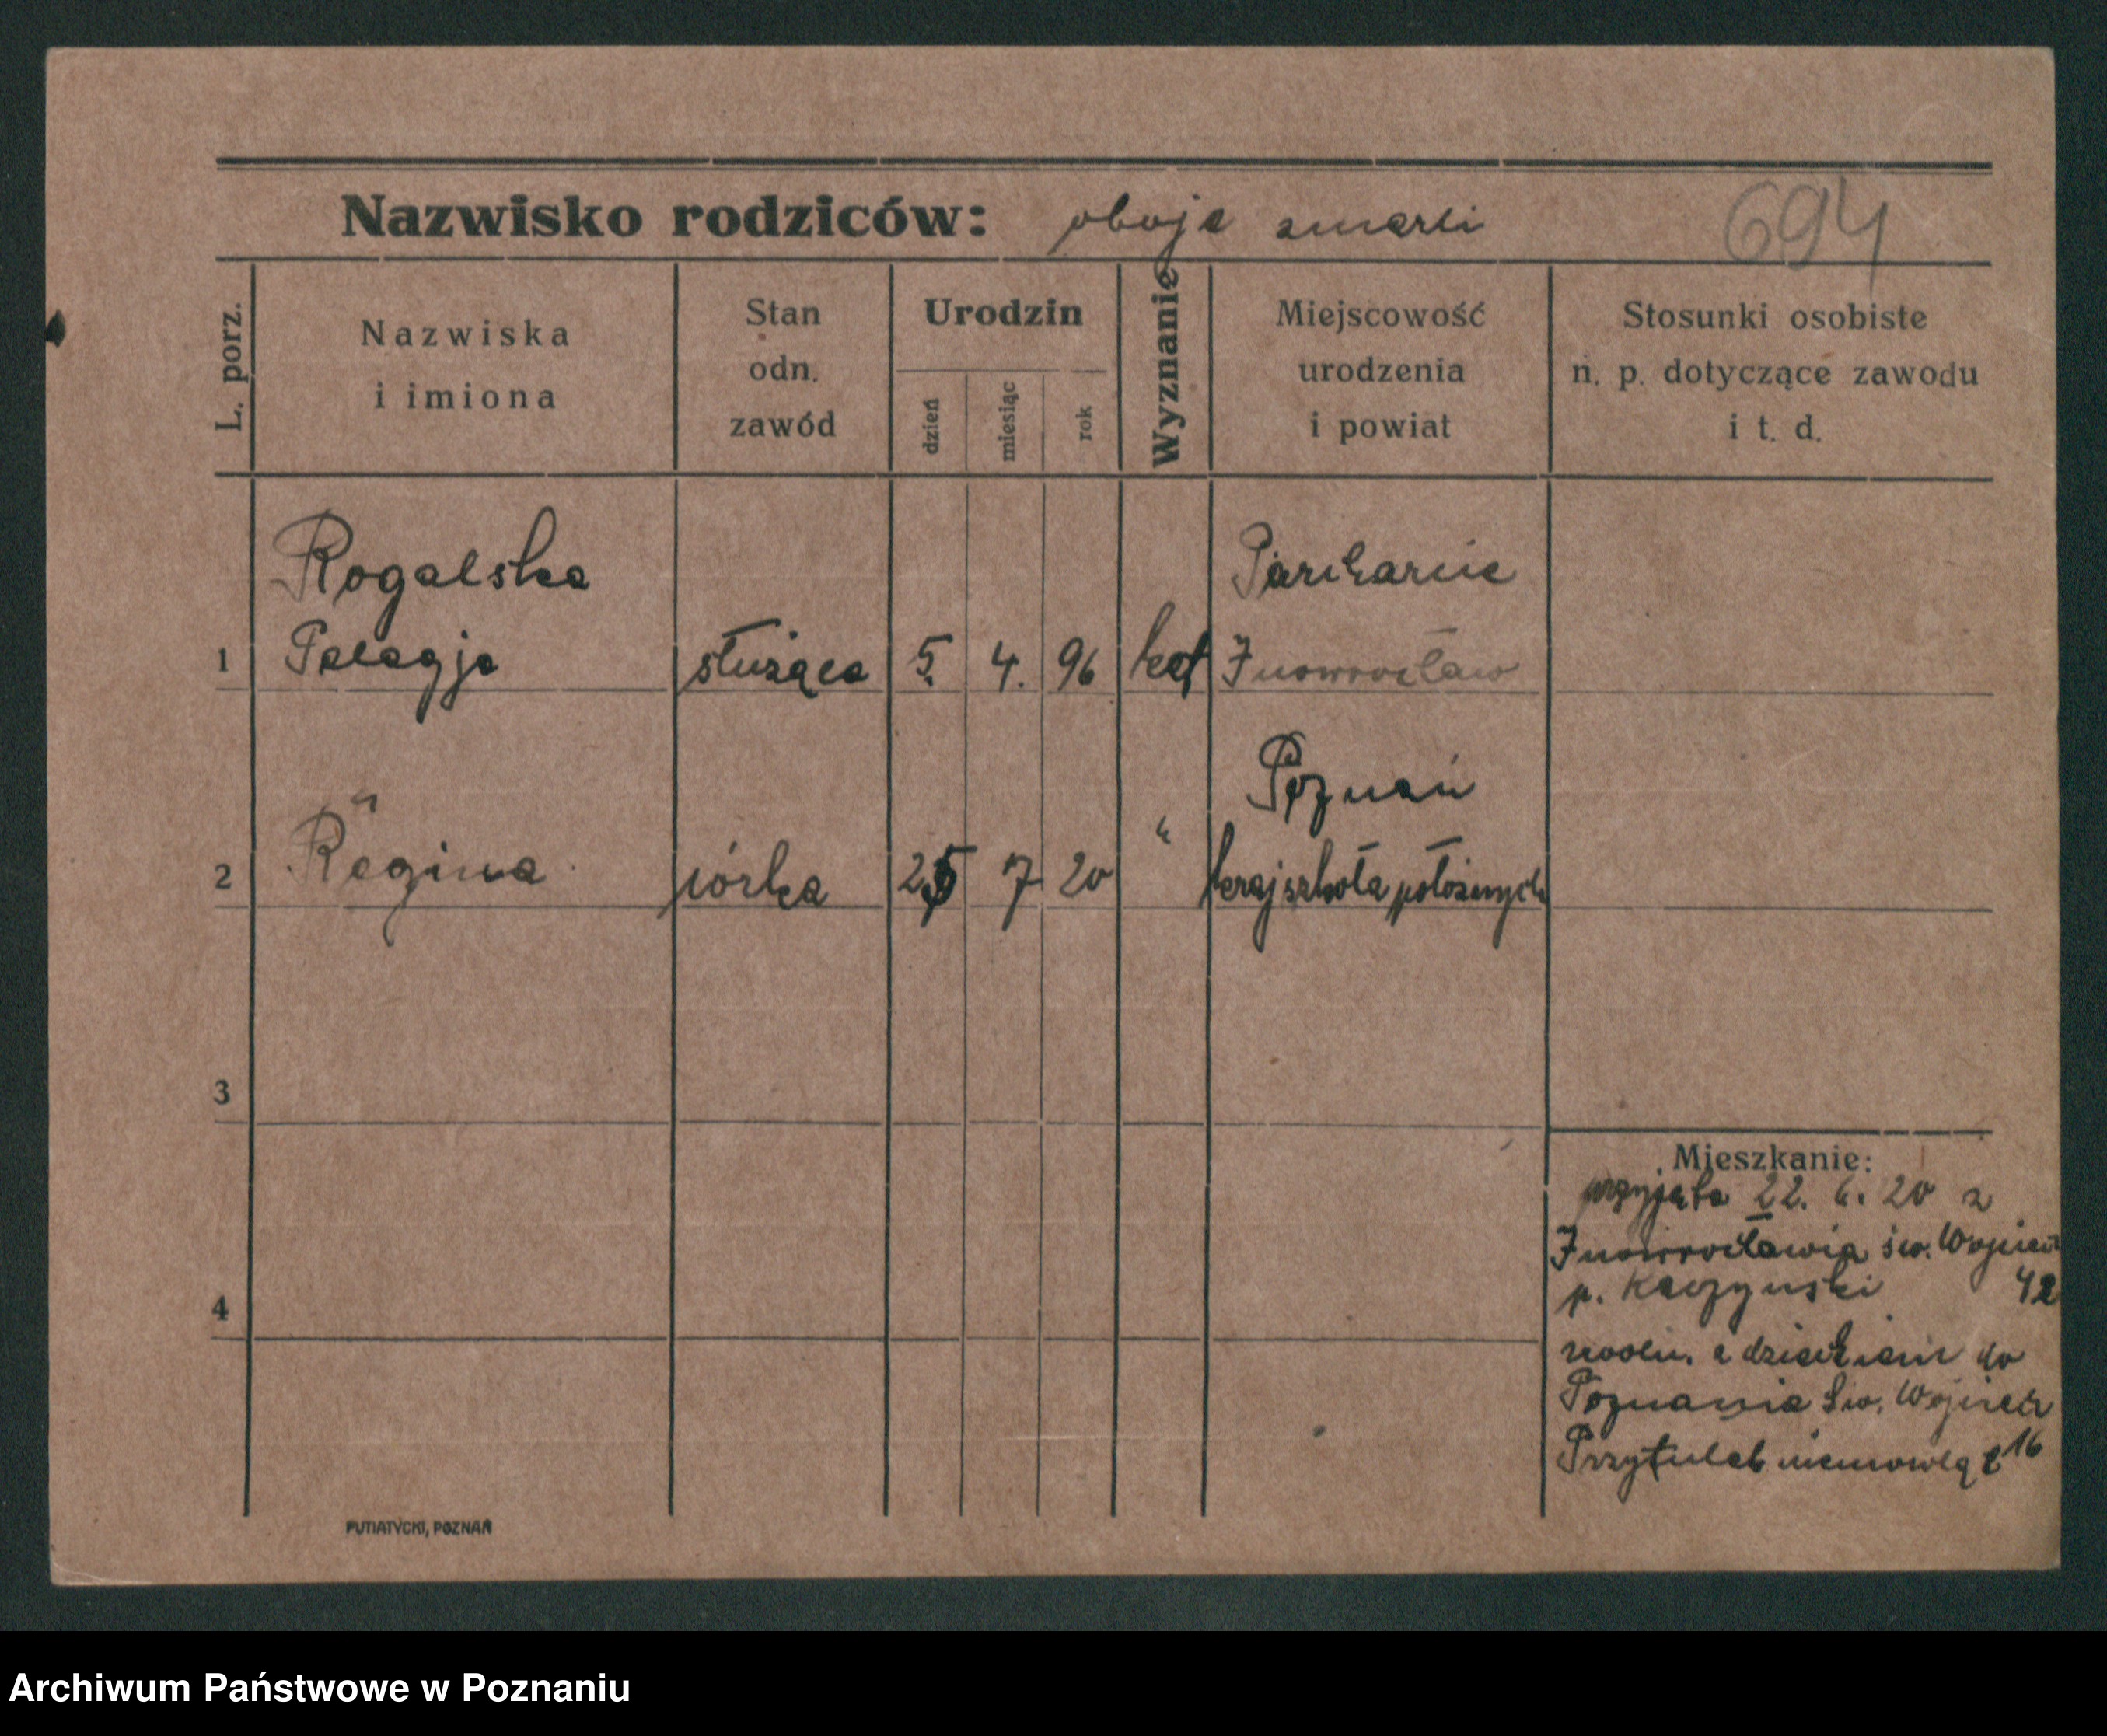 Nazwisko rodziców: oboje zmarli 694
L. porz.
Nazwiska
i imiona
Stan
odn.
zawód
Urodzin
dzień
miesiąc
rok
Wyznanie
Miejscowość
urodzenia
i powiat
Stosunki osobiste
n. p. dotyczące zawodu
i t. d.
Rogalska Parchanie
1 Pelagja służąca 5. 4. 96 kat Inowrocław
" Poznań
2 Regina córka 25 7 20 " kraj szkoła położnych
3
Mieszkanie:
przyjęta 22. 6. 20 z
Inowrocławia św. Wojciech
p. Kaczyński 42
4
zwoln. z dzieckiem do
Poznania Św. Wojciech
Przytułek niemowląt 16
PUTIATYCKI, POZNAŃ
Archiwum Państwowe w Poznaniu